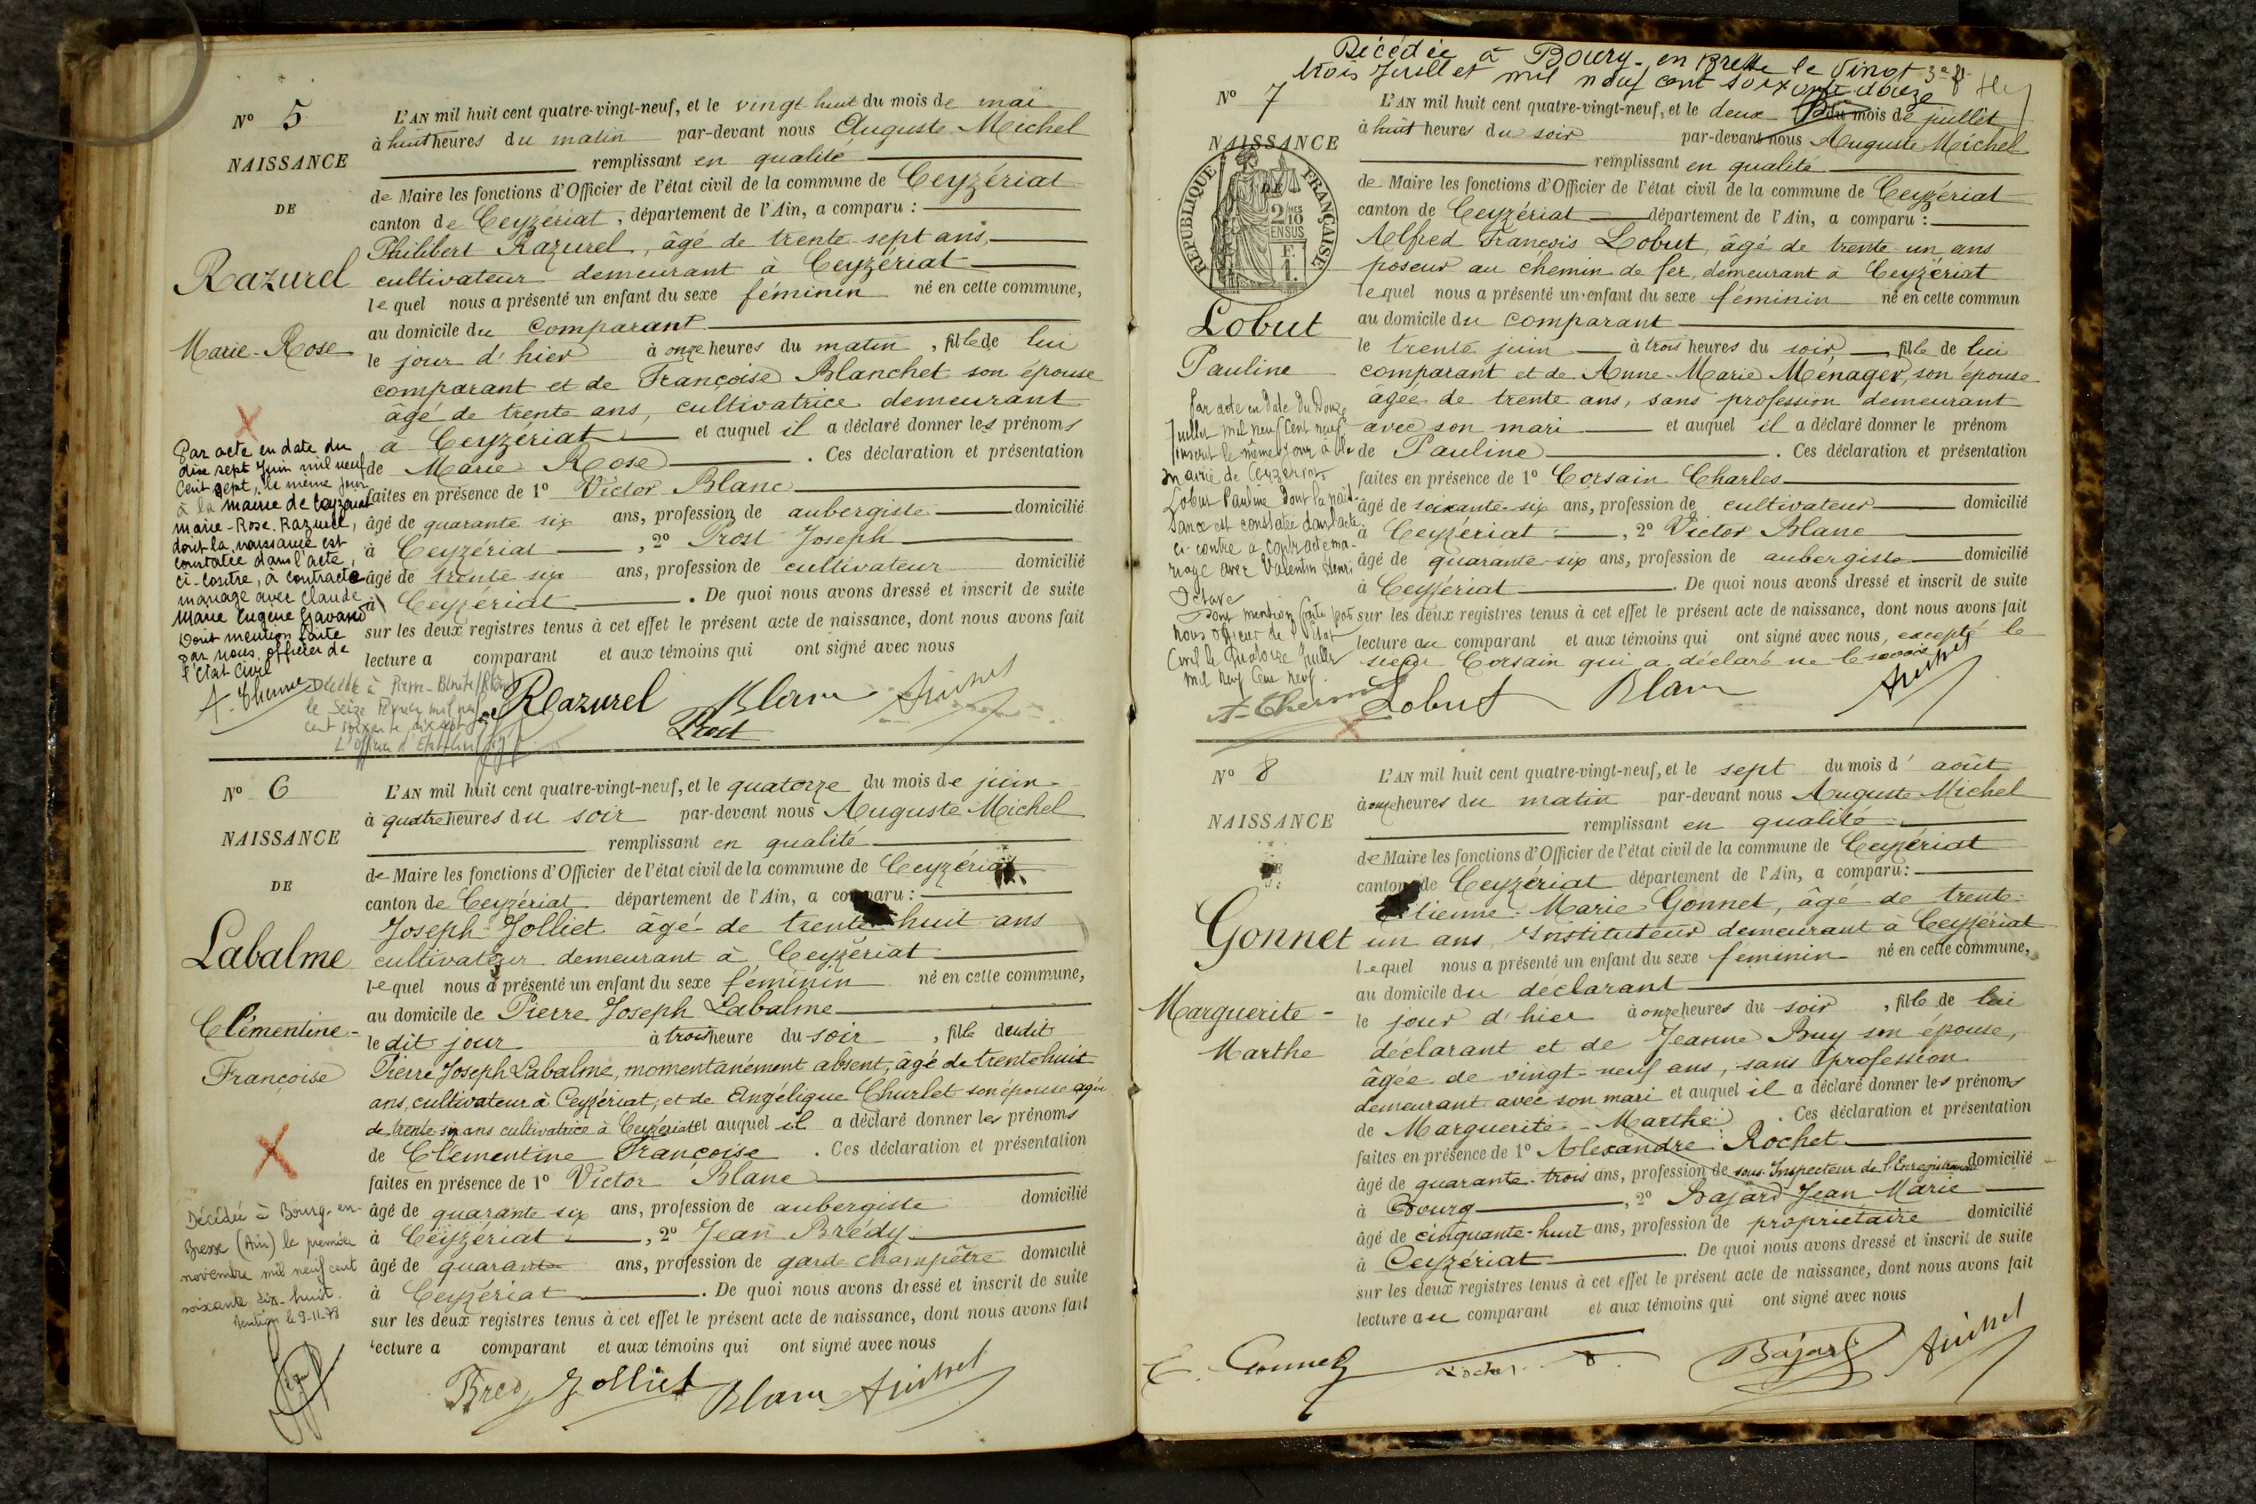 Nº 5
NAISSANCE
DE
Razurel
Marie-Rose
Par acte en date du
dix sept Juin mil neuf
cent sept, le même jour
à la mairie de Ceyzériat
Marie-Rose Razurel,
dont la naissance est
constatée dans l'acte,
ci-contre, à contracté
mariage avec Claude
Marie Eugène Gavand
Dont mention faite
par nous officier de
l'état civil
Décédée à Pierre-Bénite (Rhône)
le Seize
cent soixante dix sept
L'officier d'Etat-Civil
L'AN mil huit cent quatre-vingt-neuf, et le vingt huit du mois de mai
à huit heures du matin par-devant nous Auguste Michel
remplissant en qualité
de Maire les fonctions d'Officier de l'état civil de la commune de Ceyzériat
canton de Ceyzériat, département de l'Ain, a comparu :
Philibert Razurel, âgé de trente-sept ans,
cultivateur demeurant à Ceyzériat
lequel nous a présenté un enfant du sexe féminin né en cette commune,
au domicile du comparant
le jour d'hier à onze heures du matin, fille de lui
comparant et de Françoise Blanchet son épouse
âgé de trente ans, cultivatrice demeurant
à Ceyzériat et auquel il a déclaré donner les prénoms
de Marie Rose. Ces déclaration et présentation
faites en présence de 1º Victor Blanc
âgé de quarante six ans, profession de aubergiste domicilié
à Ceyzériat, 2º Prost Joseph
âgé de trente six ans, profession de cultivateur domicilié
à Ceyzériat. De quoi nous avons dressé et inscrit de suite
sur les deux registres tenus à cet effet le présent acte de naissance, dont nous avons fait
lecture a comparant et aux témoins qui ont signé avec nous
Razurel Blanc Michel
Prost
Nº 6
NAISSANCE
DE
Labalme
Clémentine-
Françoise
Décédée à Bourg-en-
Bresse (Ain) le premier
novembre mil neuf cent
soixante dix-huit.
Mention le 9-11-78
L'AN mil huit cent quatre-vingt-neuf, et le quatorze du mois de juin
à quatre heures du soir par-devant nous Auguste Michel
remplissant en qualité
de Maire les fonctions d'Officier de l'état civil de la commune de Ceyzériat
canton de Ceyzériat département de l'Ain, a comparu :
Joseph Jolliet âgé de trente huit ans
cultivateur demeurant à Ceyzériat
lequel nous a présenté un enfant du sexe féminin né en cette commune,
au domicile de Pierre Joseph Labalme
le dit jour à trois heure du soir, fille dudit
Pierre Joseph Labalme, momentanément absent, âgé de trente huit
ans, cultivateur à Ceyzériat, et de Angélique Churlet son épouse agée
de trente six ans cultivatrice à Ceyzériat et auquel il a déclaré donner les prénoms
de Clémentine Françoise. Ces déclaration et présentation
faites en présence de 1º Victor Blanc
âgé de quarante six ans, profession de aubergiste domicilié
à Ceyzériat, 2º Jean Brédy
âgé de quarante ans, profession de garde champêtre domicilié
à Ceyzériat. De quoi nous avons dressé et inscrit de suite
sur les deux registres tenus à cet effet le présent acte de naissance, dont nous avons fait
lecture a comparant et aux témoins qui ont signé avec nous
Bredy Jolliet Blanc Michel
Décédée à Bourg-en-Bresse le vingt
trois Juillet mil neuf cent soixante douze
Nº 7
NAISSANCE
DE
RÉPUBLIQUE FRANÇAISE
2/10 EN SUS
Lobut
Pauline
Par acte en date du Douze
Juillet mil neuf cent neuf
inscrit le même jour à la
mairie de Ceyzériat
Lobut Pauline dont la nais-
sance est constatée dans l'acte
ci-contre a contracté ma-
riage avec Valentin Henri
Octave
Dont mention faite par
nous officier de l'Etat
Civil le quatorze Juillet
mil neuf cent neuf.
L'AN mil huit cent quatre-vingt-neuf, et le deux du mois de juillet
à huit heures du soir par-devant nous Auguste Michel
remplissant en qualité
de Maire les fonctions d'Officier de l'état civil de la commune de Ceyzériat
canton de Ceyzériat département de l'Ain, a comparu :
Alfred François Lobut, âgé de trente-un ans
poseur au chemin de fer, demeurant à Ceyzériat
lequel nous a présenté un enfant du sexe féminin né en cette commun
au domicile du comparant
le trente juin à trois heures du soir, fille de lui
comparant et de Anne-Marie Ménager, son épouse
âgée de trente ans, sans profession demeurant
avec son mari et auquel il a déclaré donner le prénom
de Pauline. Ces déclaration et présentation
faites en présence de 1º Corsain Charles
âgé de soixante-six ans, profession de cultivateur domicilié
à Ceyzériat, 2º Victor Blanc
âgé de quarante-six ans, profession de aubergiste domicilié
à Ceyzériat. De quoi nous avons dressé et inscrit de suite
sur les deux registres tenus à cet effet le présent acte de naissance, dont nous avons fait
lecture au comparant et aux témoins qui ont signé avec nous, excepté le
sieur Corsain qui a déclaré ne le savoir
Lobut Blanc Michel
Nº 8
NAISSANCE
DE
Gonnet
Marguerite-
Marthe
L'AN mil huit cent quatre-vingt-neuf, et le sept du mois d'août
à onze heures du matin par-devant nous Auguste Michel
remplissant en qualité
de Maire les fonctions d'Officier de l'état civil de la commune de Ceyzériat
canton de Ceyzériat département de l'Ain, a comparu :
Etienne-Marie Gonnet, âgé de trente-
un ans, Instituteur demeurant à Ceyzériat
lequel nous a présenté un enfant du sexe féminin né en cette commune,
au domicile du déclarant
le jour d'hier à onze heures du soir, fille de lui
déclarant et de Jeanne Buy son épouse,
âgée de vingt-neuf ans, sans profession
demeurant avec son mari et auquel il a déclaré donner les prénoms
de Marguerite-Marthe. Ces déclaration et présentation
faites en présence de 1º Alexandre Rochet
âgé de quarante-trois ans, profession de sous-Inspecteur de l'Enregistrement domicilié
à Bourg, 2º Bajard Jean Marie
âgé de cinquante-huit ans, profession de propriétaire domicilié
à Ceyzériat. De quoi nous avons dressé et inscrit de suite
sur les deux registres tenus à cet effet le présent acte de naissance, dont nous avons fait
lecture au comparant et aux témoins qui ont signé avec nous
E. Gonnet Rochet Bajard Michel